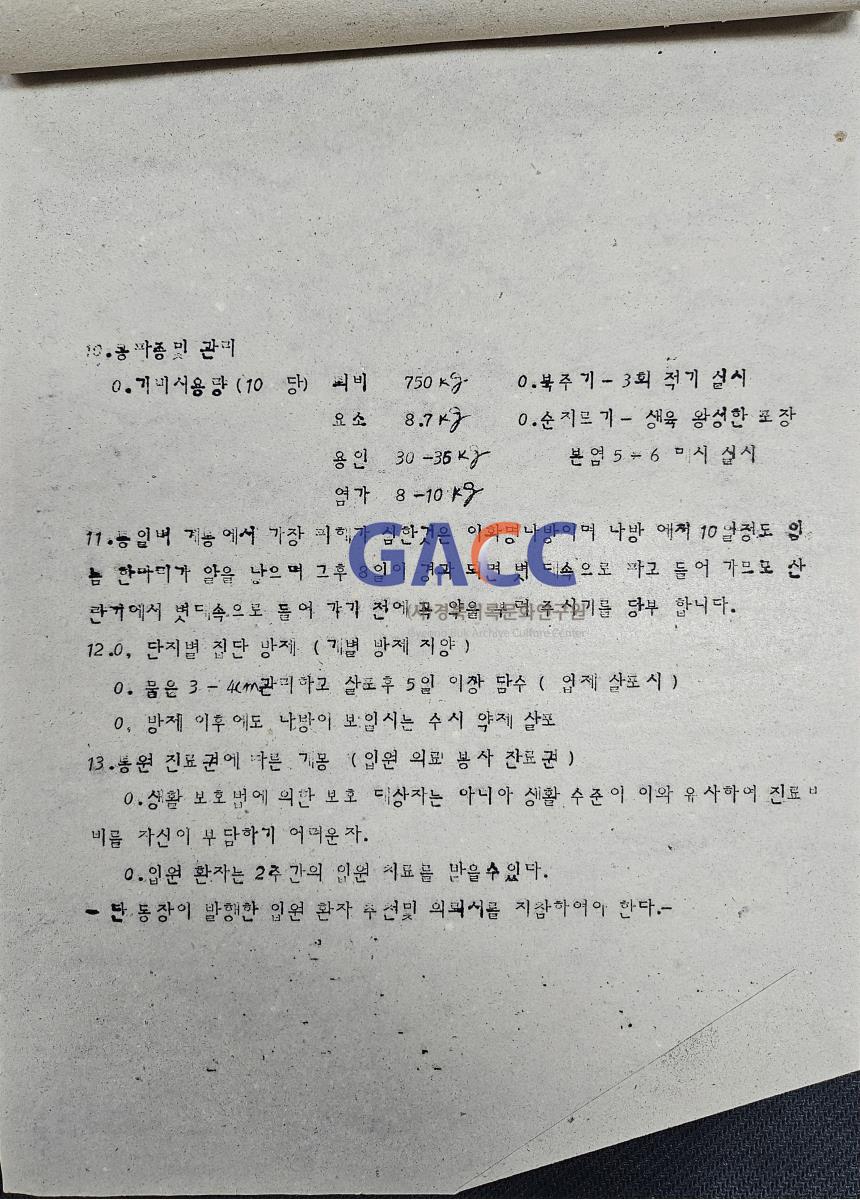 10.콩파종및 관리
0.기비시용량 (10 당) 퇴비 750 Kg 0.북주기 - 3회 적기 실시
요소 8.7 Kg 0.순지르기 - 생육 왕성한 포장
용인 30 -35 Kg 본엽 5 - 6 매시 실시
염가 8 -10 Kg
11.통일벼 계통에서 가장 피해가 심한것은 이화명나방이며 나방 에서 10일정도
한마디가 알을 낳으며 그후 8일이 경과 되면 볏 대속으로 파고 들어 가므로 산
란기에서 볏대속으로 들어 가기 전에 꼭 주시기를 당부 합니다.
GACC
(사)경북기록문화연구원
Archive Culture Center
12.0, 단지별 집단 방제 ( 개별 방제 지양 )
0. 물은 3 - 4cm관리하고 살포후 5일 이상 담수 ( 입제 살포시 )
0, 방제 이후에도 나방이 보입시는 수시 약제 살포
13.통원 진료권에 따른 계몽 (입원 의료 봉사 진료권 )
0.생활 보호법에 의한 보호 대상자는 아니아 생활 수준이 이와 유사하여 진료비
비를 자신이 부담하기 어려운자.
0.입원 환자는 2주간의 입원 치료를 받을수있다.
- 단 동장이 발행한 입원 환자 추천및 의뢰서를 지참하여야 한다.-